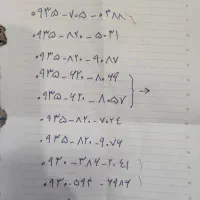 ۰۹۳۵-۷۰۵-۰۳۸۸
۰۹۳۵-۸۲۰-۵۰۳۱
۰۹۳۵-۸۲۰-۹۰۸۷
۰۹۳۵-۴۲۰-۸۰۴۹
۰۹۳۵-۴۲۰-۸۰۵۷
۰۹۳۵-۸۲۰-۷۰۲۴
۰۹۳۵-۸۲۰-۹۰۷۶
۰۹۳۰-۳۸۷-۲۰۴۱
۰۹۳۰-۵۹۴-۶۹۸۷